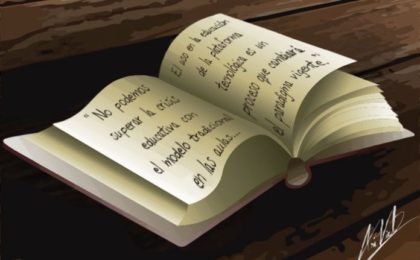 "No podemos
superar la crisis
educativa con
el modelo tradicional
en las aulas...
El uso en la educación
de la plataforma
tecnológica es un
proceso que cambiaría
el paradigma vigente".